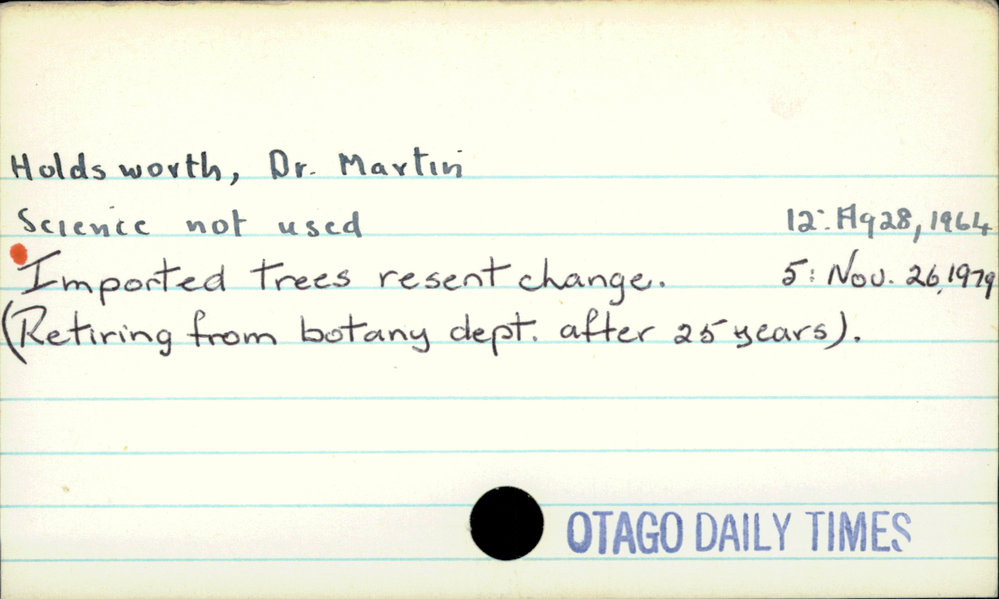 Holdsworth, Dr. Martin
Science not used 12: Ag 28, 1964
Imported trees resent change. 5: Nov. 26, 1979
(Retiring from botany dept. after 25 years).
OTAGO DAILY TIMES